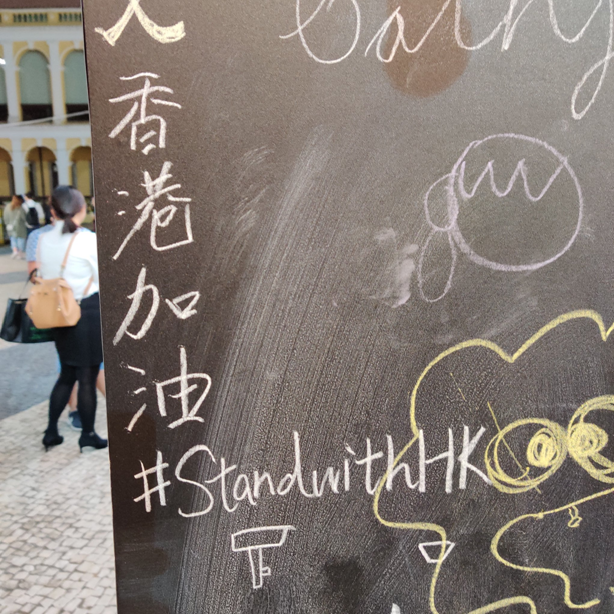 人
香港加油
#StandwithHK